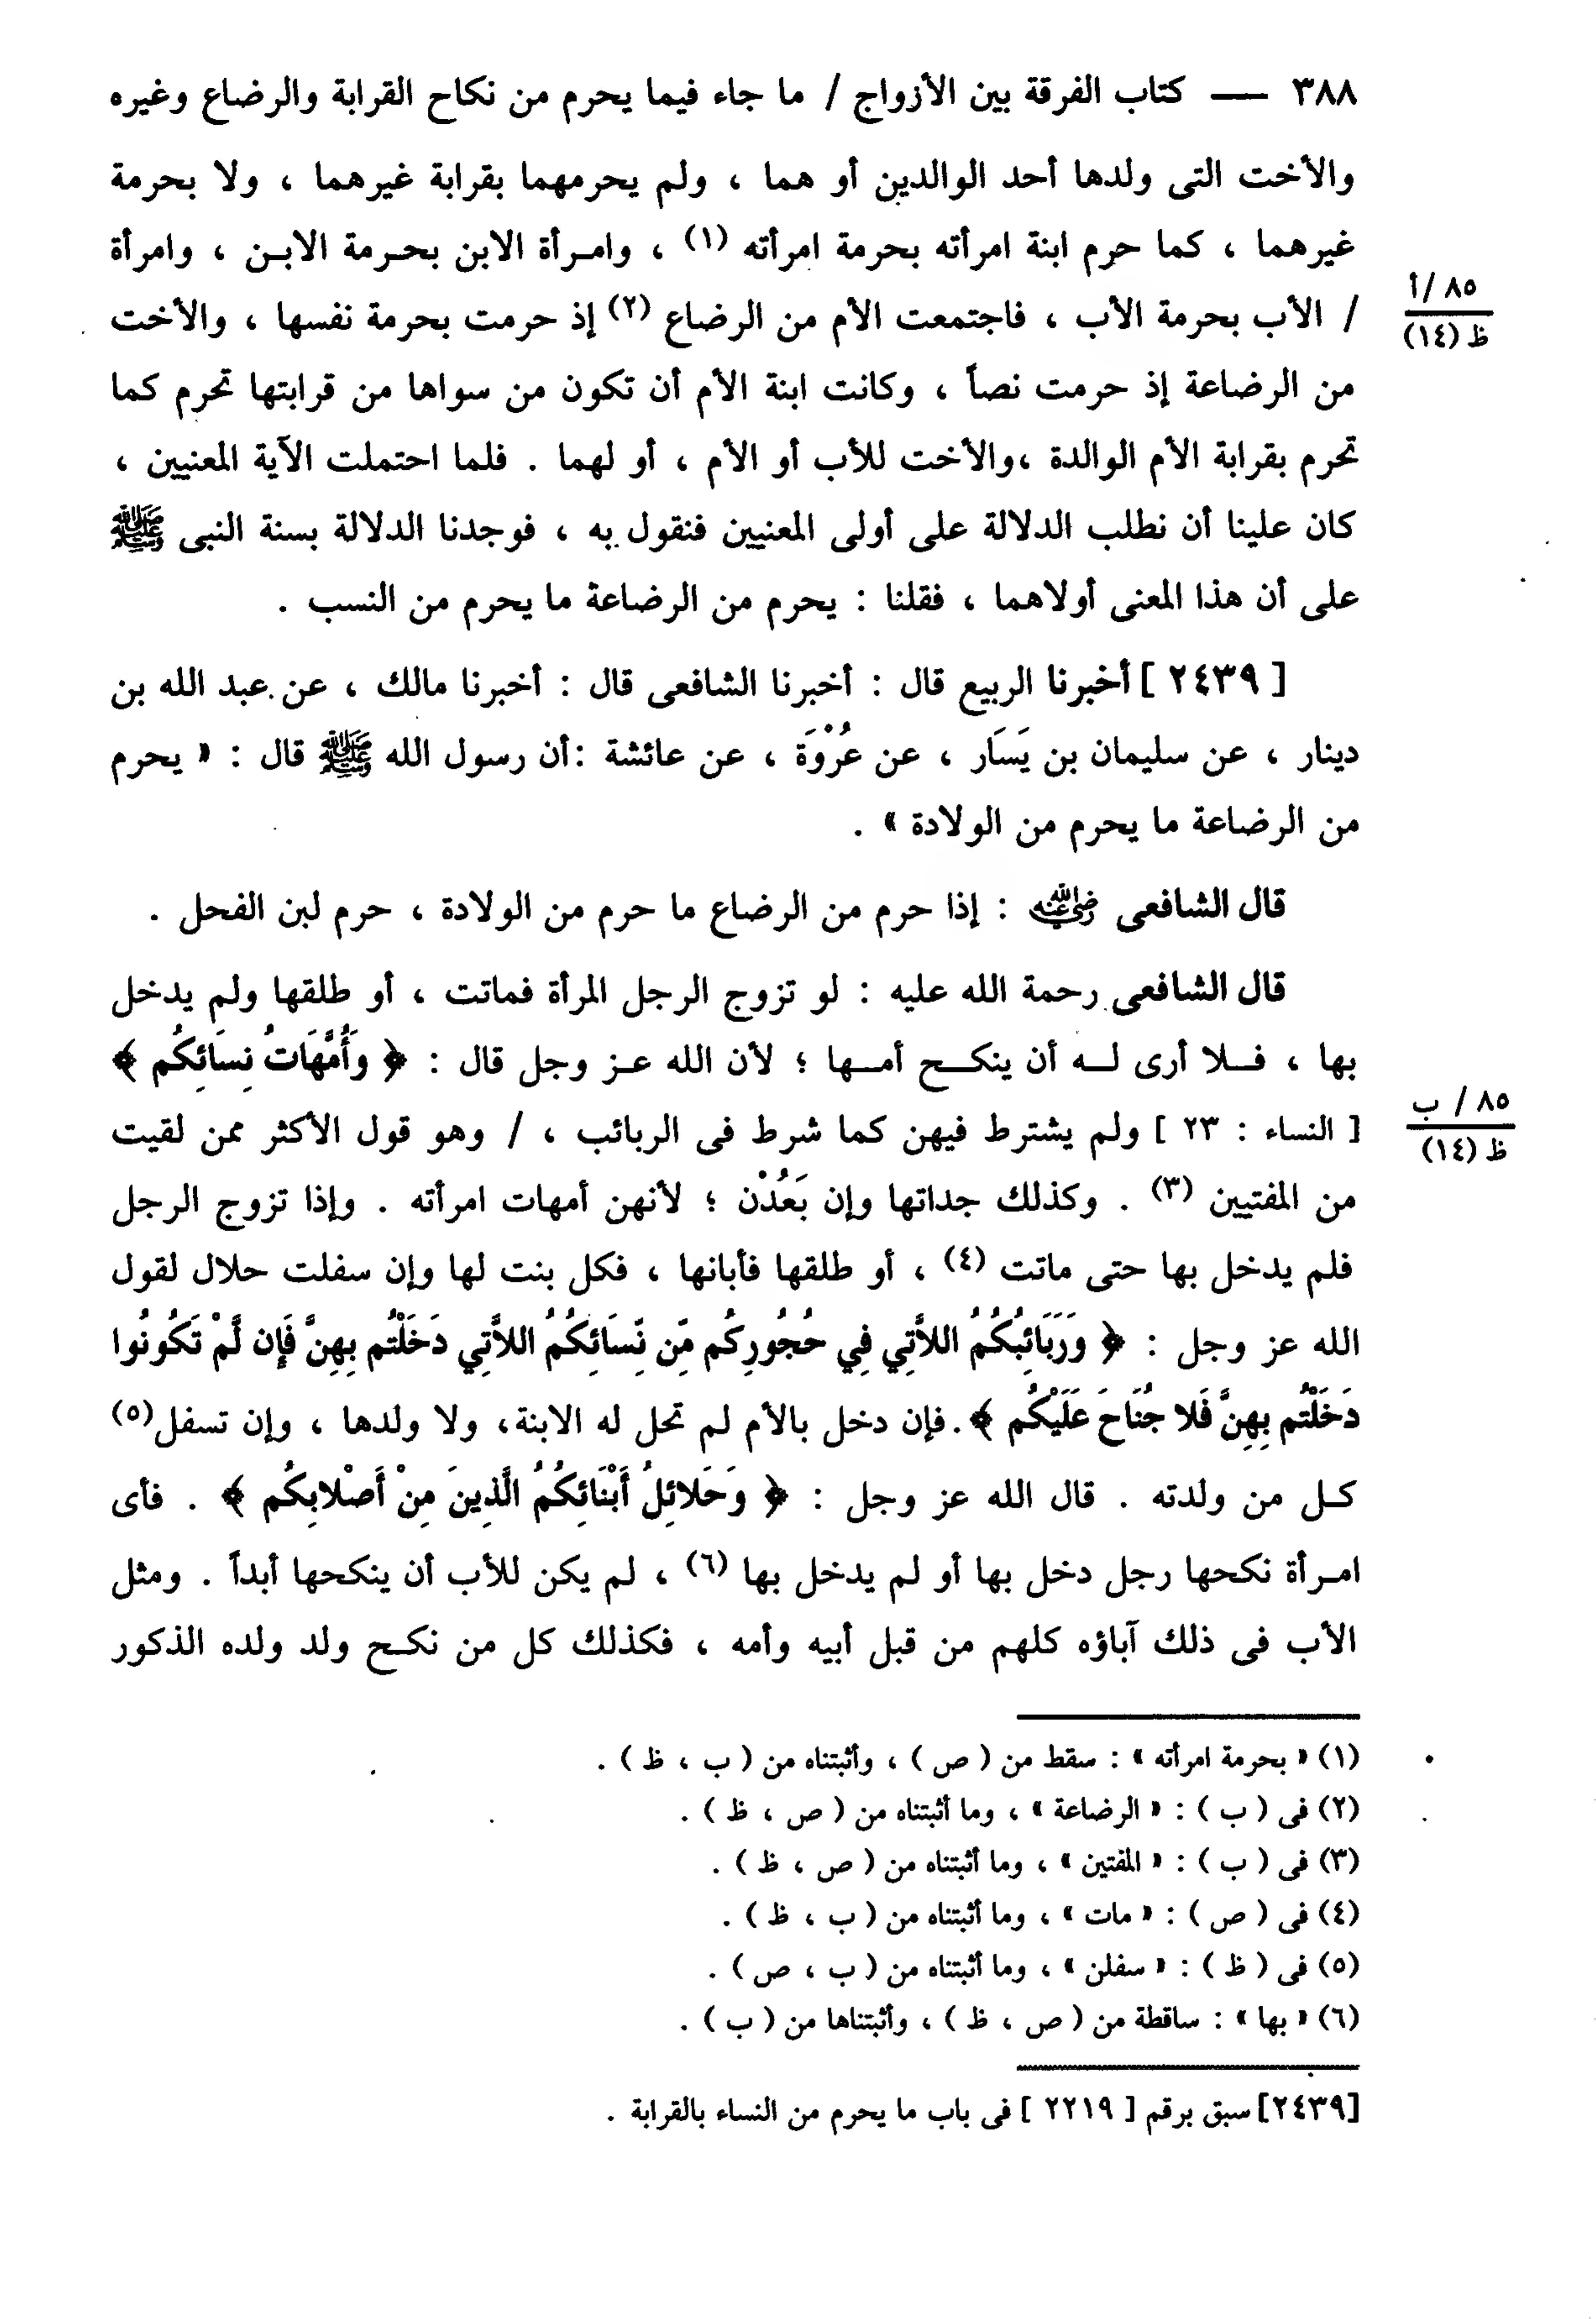 ٣٨٨ — كتاب الفرقة بين الأزواج / ما جاء فيما يحرم من نكاح القرابة والرضاع وغيره
والأخت التى ولدها أحد الوالدين أو هما ، ولم يحرمهما بقرابة غيرهما ، ولا بحرمة
غيرهما ، كما حرم ابنة امرأته بحرمة امرأته (١) ، وامـرأة الابن بحـرمة الابـن ، وامرأة
/ الأب بحرمة الأب ، فاجتمعت الأم من الرضاع (٢) إذ حرمت بحرمة نفسها ، والأخت
٨٥ /أ
ظ (١٤)
من الرضاعة إذ حرمت نصاً ، وكانت ابنة الأم أن تكون من سواها من قرابتها تحرم كما
تحرم بقرابة الأم الوالدة ،والأخت للأب أو الأم ، أو لهما . فلما احتملت الآية المعنيين ،
كان علينا أن نطلب الدلالة على أولى المعنيين فنقول به ، فوجدنا الدلالة بسنة النبى ﷺ
على أن هذا المعنى أولاهما ، فقلنا : يحرم من الرضاعة ما يحرم من النسب .
[ ٢٤٣٩ ] أخبرنا الربيع قال : أخبرنا الشافعى قال : أخبرنا مالك ، عن عبد الله بن
دينار ، عن سليمان بن يَسَار ، عن عُرْوَة ، عن عائشة :أن رسول الله ﷺ قال : « يحرم
من الرضاعة ما يحرم من الولادة » .
قال الشافعى رضي الله عنه : إذا حرم من الرضاع ما حرم من الولادة ، حرم لبن الفحل .
قال الشافعى رحمة الله عليه : لو تزوج الرجل المرأة فماتت ، أو طلقها ولم يدخل
بها ، فـلا أرى لـه أن ينكـح أمـها ؛ لأن الله عـز وجل قال : ﴿ وَأُمَّهَاتُ نِسَائِكُم ﴾
[ النساء : ٢٣ ] ولم يشترط فيهن كما شرط فى الربائب ، / وهو قول الأكثر ممن لقيت
٨٥ / ب
ظ (١٤)
من المفتيين (٣) . وكذلك جداتها وإن بَعُدْن ؛ لأنهن أمهات امرأته . وإذا تزوج الرجل
فلم يدخل بها حتى ماتت (٤) ، أو طلقها فأبانها ، فكل بنت لها وإن سفلت حلال لقول
الله عز وجل : ﴿ وَرَبَائِبُكُمُ اللاَّتِي فِي حُجُورِكُم مِّن نِّسَائِكُمُ اللاَّتِي دَخَلْتُم بِهِنَّ فَإِن لَّمْ تَكُونُوا
دَخَلْتُم بِهِنَّ فَلا جُنَاحَ عَلَيْكُم ﴾ .فإن دخل بالأم لم تحل له الابنة، ولا ولدها ، وإن تسفل(٥)
كـل من ولدته . قال الله عز وجل : ﴿ وَحَلائِلُ أَبْنَائِكُمُ الَّذِينَ مِنْ أَصْلابِكُم ﴾ . فأى
امـرأة نكحها رجل دخل بها أو لم يدخل بها (٦) ، لم يكن للأب أن ينكحها أبداً . ومثل
الأب فى ذلك آباؤه كلهم من قبل أبيه وأمه ، فكذلك كل من نكـح ولد ولده الذكور
(١) « بحرمة امرأته » : سقط من ( ص ) ، وأثبتناه من ( ب ، ظ ) .
(٢) فى ( ب ) : « الرضاعة » ، وما أثبتناه من ( ص ، ظ ) .
(٣) فى ( ب ) : « المفتين » ، وما أثبتناه من ( ص ، ظ ) .
(٤) فى ( ص ) : « مات » ، وما أثبتناه من ( ب ، ظ ) .
(٥) فى ( ظ ) : « سفلن » ، وما أثبتناه من ( ب ، ص ) .
(٦) « بها » : ساقطة من ( ص ، ظ ) ، وأثبتناها من ( ب ) .
[٢٤٣٩] سبق برقم [ ٢٢١٩ ] فى باب ما يحرم من النساء بالقرابة .